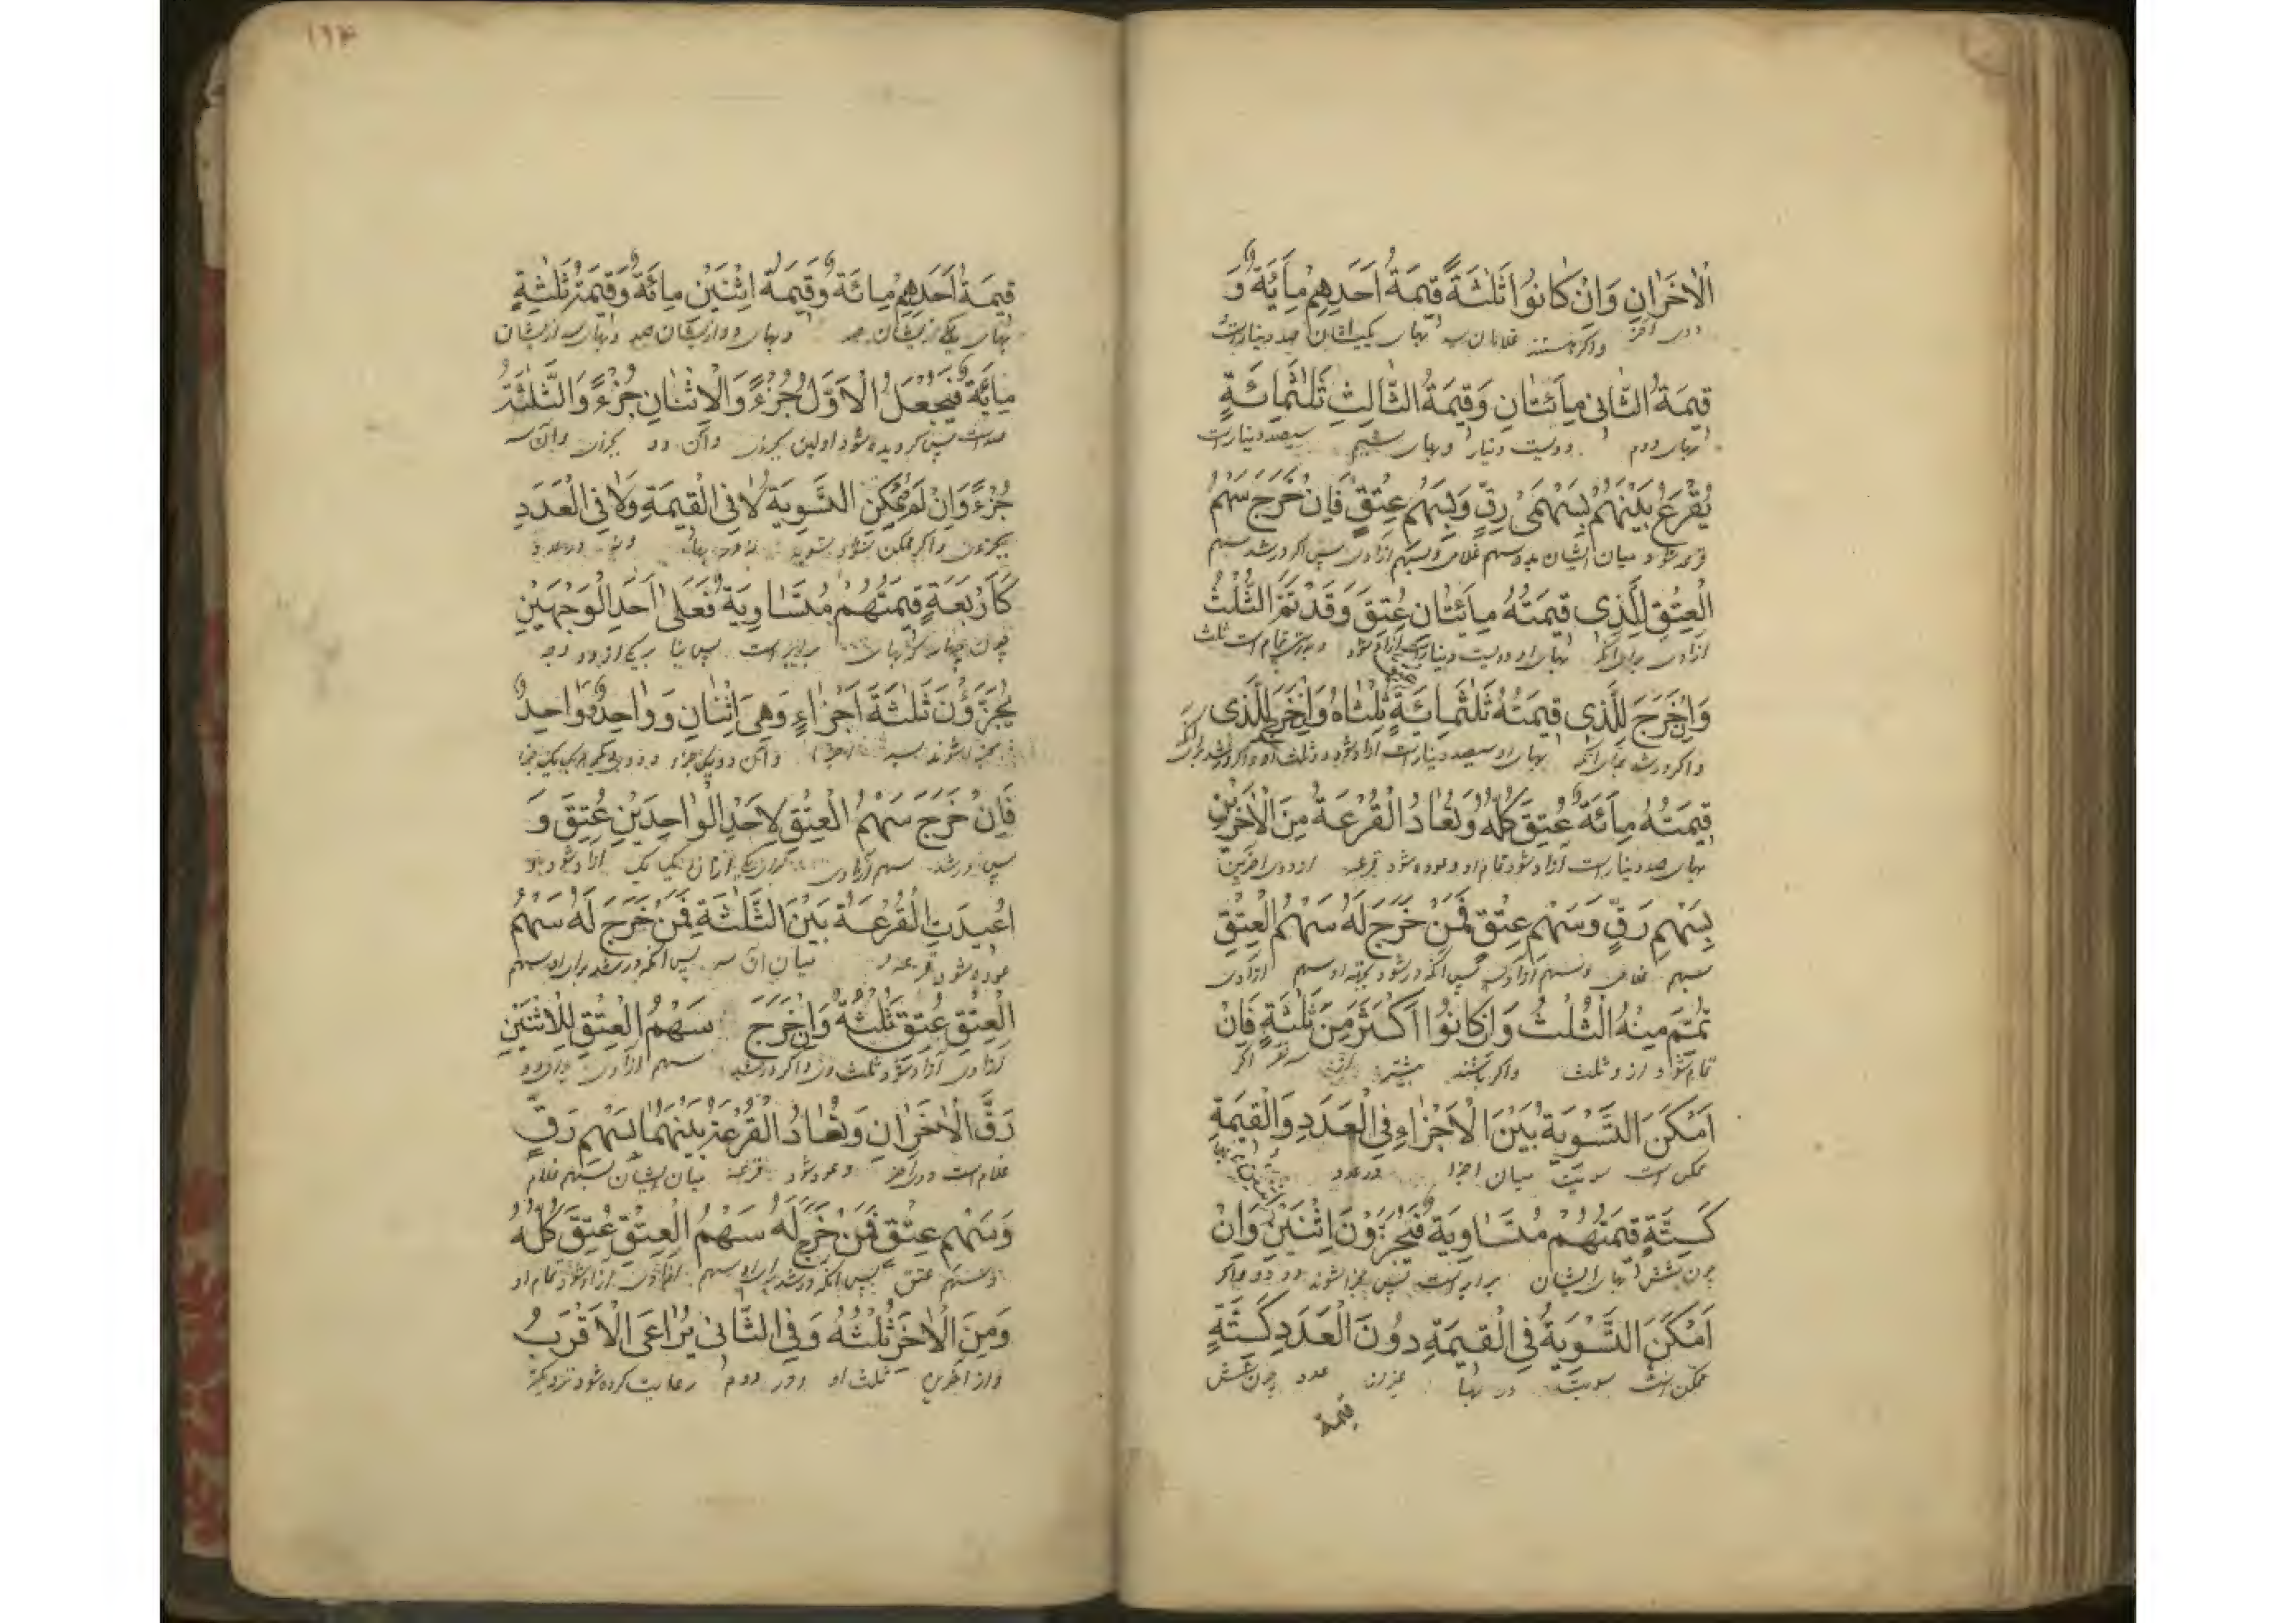 الْاٰخَرٰانِ وَاِنْ كٰانُوا ثَلٰثَةً قِيمَةُ اَحَدِهِمْ مِأَيَةٌ وَ
واكر هستند غلامان سه بهاى يكى ايشان صد دينارست
قِيمَةُ الثّٰانِى مِاَئتٰانِ وَقِيمَةُ الثّٰالِثِ ثَلٰثُمِائَةٍ
بهاى دوم دويست دينار وبهاى سيم سيصد دينارست
يُقْرَعُ بَيْنَهُمْ بِسَهْمَىْ رِقٍّ وَبِسَهْمِ عِتْقٍ فَاِنْ خَرَجَ سَهْمُ
قرعه شود ميان ايشان بدو سهم غلامى وبسهم ازادى پس اكر در شد سهم
الْعِتْقِ لِلَّذِى قِيمَتُهُ مِاَئتٰانِ عُتِقَ وَقَدْ تَمَّ الثُّلْثُ
ازادى براى انكه بهاى او دويست دينارست ازاد شود وبدرستى تمام است ثلث
وَاِنْ خَرَجَ لِلَّذِى قِيمَتُهُ ثَلٰثُمِائَةٍ ثُلْثٰاهُ وَاِنْ خَرَجَ لِلَّذِى
واكر در شد براى انكه بهاى او سيصد دينارست ازاد شود دو ثلث او واكر در شد براى انكه
قِيمَتُهُ مِأَئَةٌ عُتِقَ كُلُّهُ وَتُعٰادُ الْقُرْعَةُ مِنَ الْاٰخَرَيْنِ
بهاى صد دينارست ازاد شود تمام او وعوده شود قرعه از دوى اخرين
بِسَهْمِ رَقٍّ وَسَهْمِ عِتْقٍ فَمَنْ خَرَجَ لَهُ سَهْمُ الْعِتْقِ
بسهم غلامى وسهم ازادى پس انكه در شود بجهة او سهم ازادى
تُمِّمَ مِنْهُ الثُّلْثُ وَاِنْ كٰانُوا اَكْثَرَ مِنَ ثَلٰثَةٍ فَاِنْ
تمام شود از و ثلث واكر باشند بيشتر از سه نفر اكر
اَمْكَنَ التَّسْوِيَةُ بَيْنَ الْاَجْزٰاءِ فِى الْعَدَدِ وَالْقِيمَةِ
ممكن است سويت ميان اجزا در عدد
كَسِتَّةٍ قِيمَتُهُمْ مُتَسٰاوِيَةٌ فَيُجَزَّؤُنَ اِثْنَيْنِ وَاِنْ
چون شش بهاى ايشان برابر است پس جزا شوند دو دو واكر
اَمْكَنَ التَّسْوِيَةُ فِى الْقِيمَةِ دُونَ الْعَدَدِ كَسِتَّةٍ
ممكن است سويت در بها غير از عدد چون شش
قيمة
١٦٣
قِيمَةُ اَحَدِهِمْ مِائَةٌ وَقِيمَةُ اِثْنَيْنِ مِائَةٌ وَقِيمَةُ ثَلٰثَةٍ
بهاى يكى از ايشان صد وبهاى دو از ايشان صد وبهاى سه از ايشان
مِأئَةٌ فَيُجْعَلُ الْاَوَّلُ جُزْءً وَالْاِثْنٰانِ جُزْءً وَالثَّلٰثَةُ
صد است پس كرديده شود اولين بجزوى وآن دو بجزوى وآن سه
جُزْءً وَاِنْ لَمْ يُمْكِنِ التَّسْوِيَةُ لَا فِى الْقِيمَةِ وَلَا فِى الْعَدَدِ
بجزوى واكر ممكن نشود تسويه نه در بها ونه در عدد
كَاَرْبَعَةٍ قِيمَتُهُمْ مُتَسٰاوِيَةٌ فَعَلٰى اَحَدِ الْوَجْهَيْنِ
چون چهار كه بهاى برابر است پس بنا بر يكى از دو وجه
يُجَزَّؤُنَ ثَلٰثَةَ اَجْزٰاءٍ وَهِىَ اِثْنٰانِ وَوٰاحِدٌ وَوٰاحِدٌ
فَاِنْ خَرَجَ سَهْمُ الْعِتْقِ لِاَحَدِ الْوٰاحِدَيْنِ عُتِقَ وَ
پس اكر در شد سهم ازادى براى يكى از ان يك يك ازاد شود
اُعِيدَتِ الْقُرْعَةُ بَيْنَ الثَّلٰثَةِ فَمَنْ خَرَجَ لَهُ سَهْمُ
عوده شود قرعه ميان ان سه پس انكه در شد براى او سهم
الْعِتْقِ عُتِقَ ثُلْثُهُ وَاِنْ خَرَجَ سَهْمُ الْعِتْقِ لِلْاِثْنَيْنِ
ازادى ازاد شود ثلث او واكر در شد سهم ازادى براى دو
رَقَّ الْاٰخَرٰانِ وَتُعٰادُ الْقُرْعَةُ بَيْنَهُمٰا بِسَهْمِ رَقٍّ
غلام است دوى اخر وعود شود قرعه ميان ايشان بسهم غلام
وَسَهْمِ عِتْقٍ فَمَنْ خَرَجَ لَهُ سَهْمُ الْعِتْقِ عُتِقَ كُلُّهُ
وسهم عتق پس انكه در شد براى او سهم ازادى ازاد شود تمام او
وَمِنَ الْاٰخَرِ ثُلْثُهُ وَفِى الثّٰانِى يُرٰاعَى الْاَقْرَبُ
واز اخرين ثلث او ودر دوم رعايت كرده شود نزديكتر